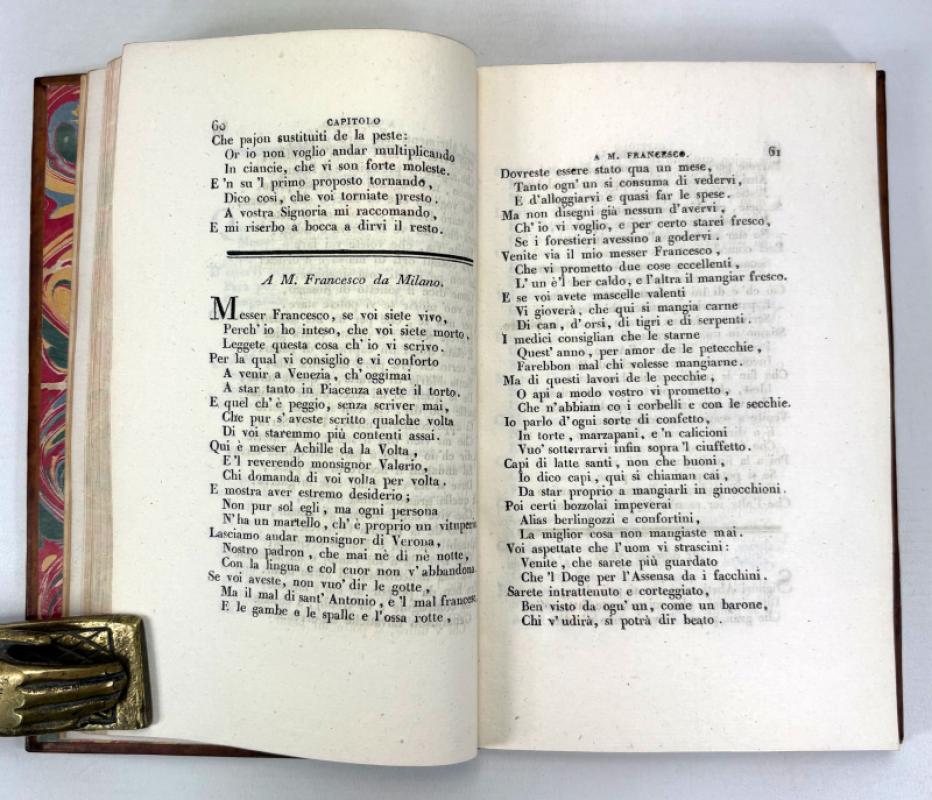 60 CAPITOLO
Che pajon sustituiti de la peste:
Or io non voglio andar multiplicando
In ciancie, che vi son forte moleste.
E 'n su 'l primo proposto tornando,
Dico così, che voi torniate presto.
A vostra Signoria mi raccomando,
E mi riserbo a bocca a dirvi il resto.
A M. Francesco da Milano.
Messer Francesco, se voi siete vivo,
Perch' io ho inteso, che voi siete morto,
Leggete questa cosa ch' io vi scrivo.
Per la qual vi consiglio e vi conforto
A venir a Venezia, ch' oggimai
A star tanto in Piacenza avete il torto.
E quel ch' è peggio, senza scriver mai,
Che pur s' aveste scritto qualche volta
Di voi staremmo più contenti assai.
Qui è messer Achille da la Volta,
E 'l reverendo monsignor Valerio,
Chi domanda di voi volta per volta.
E mostra aver estremo desiderio;
Non pur sol egli, ma ogni persona
N' ha un martello, ch' è proprio un vituperio
Lasciamo andar monsignor di Verona,
Nostro padron, che mai nè dì nè notte,
Con la lingua e col cuor non v' abbandona.
Se voi aveste, non vuo' dir le gotte,
Ma il mal di sant' Antonio, e 'l mal frances
E le gambe e le spalle e l' ossa rotte,
A M. FRANCESCO. 61
Dovreste essere stato qua un mese,
Tanto ogn' un si consuma di vedervi,
E d'alloggiarvi e quasi far le spese.
Ma non disegni già nessun d'avervi,
Ch' io vi voglio, e per certo starei fresco,
Se i forestieri avessino a godervi.
Venite via il mio messer Francesco,
Che vi prometto due cose eccellenti,
L' un è'l ber caldo, e l'altra il mangiar fresco.
E se voi avete mascelle valenti
Vi gioverà, che qui si mangia carne
Di can, d' orsi, di tigri e di serpenti.
I medici consiglian che le starne
Quest' anno, per amor de le petecchie,
Farebbon mal chi volesse mangiarne.
Ma di questi lavori de le pecchie,
O api a modo vostro vi prometto,
Che n'abbiam co i corbelli e con le secchie.
Io parlo d'ogni sorte di confetto,
In torte, marzapani, e 'n calicioni
Vuo' sotterrarvi infin sopra 'l ciuffetto.
Capi di latte santi, non che buoni,
Io dico capi, qui si chiaman cai,
Da star proprio a mangiarli in ginocchioni.
Poi certi bozzolai impeverai
Alias berlingozzi e confortini,
La miglior cosa non mangiaste mai.
Voi aspettate che l'uom vi strascini:
Venite, che sarete più guardato
Che 'l Doge per l'Assensa da i facchini.
Sarete intrattenuto e corteggiato,
Ben visto da ogn' un, come un barone,
Chi v' udirà, si potrà dir beato.